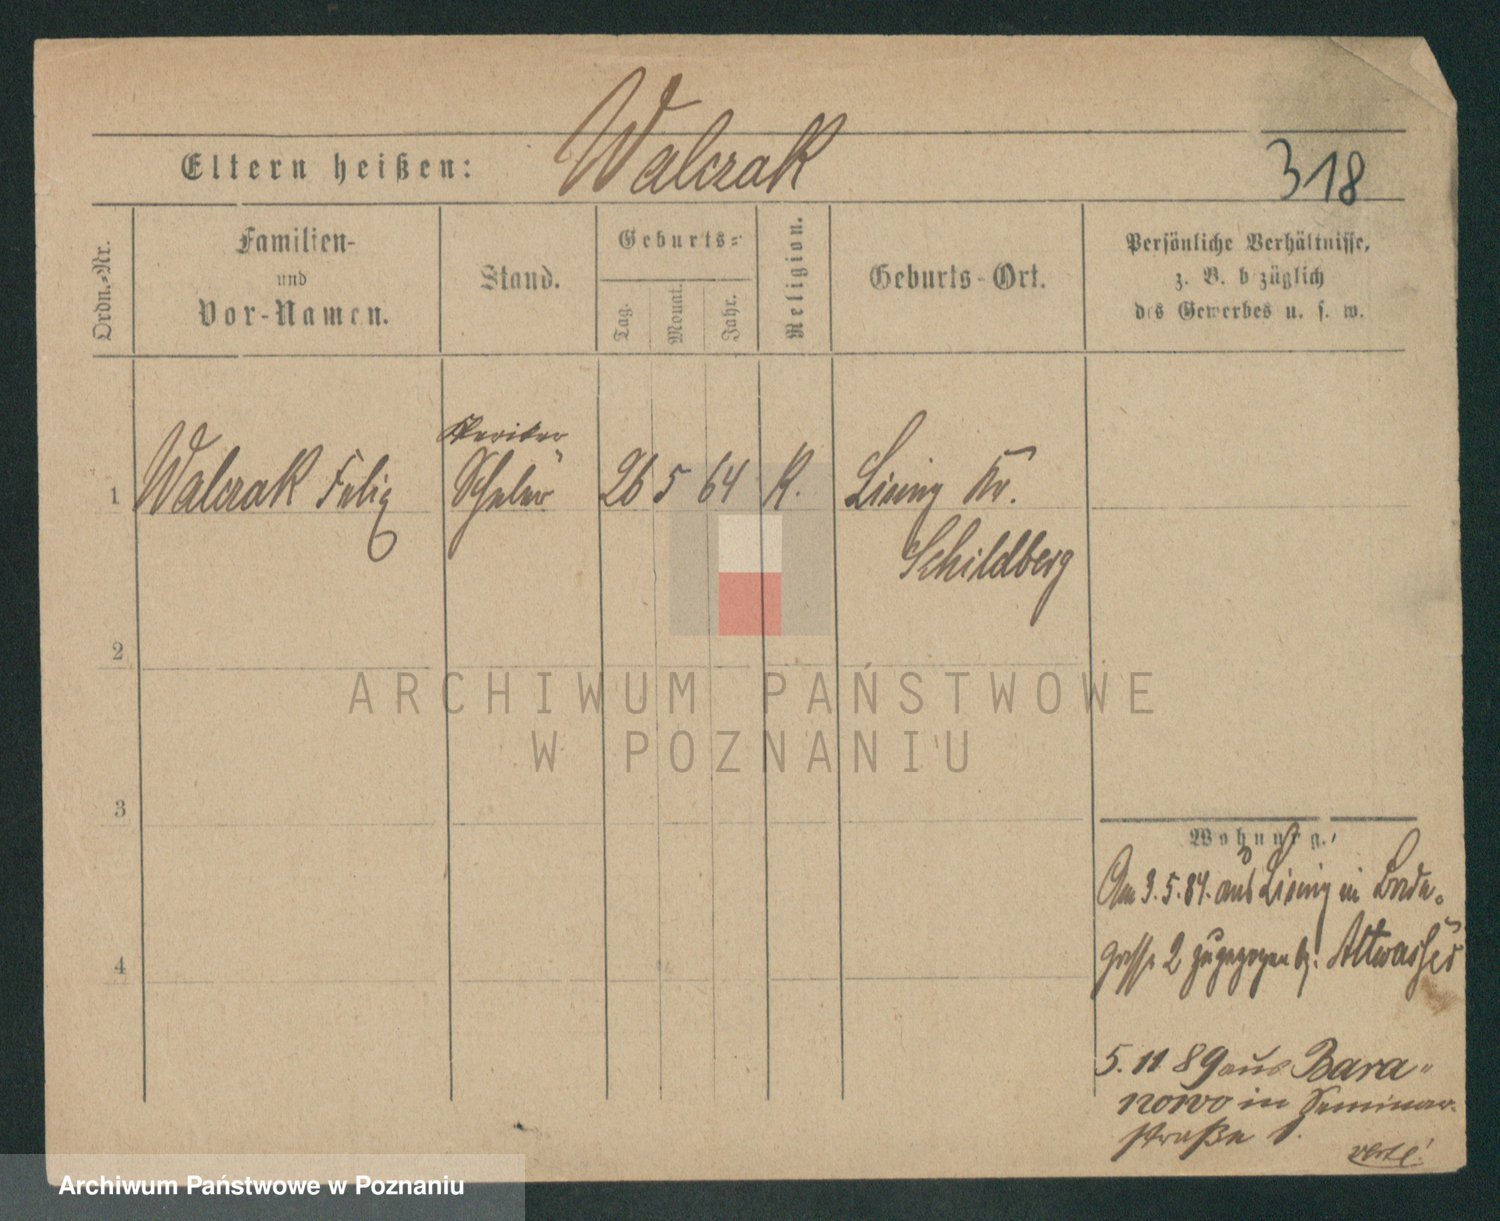 Eltern heißen: Walczak
318
Ordn.-Nr.
Familien-
und
Vor-Namen.
Stand.
Geburts-
Tag.
Monat.
Jahr.
Religion.
Geburts-Ort.
Persönliche Verhältnisse,
z. B. bezüglich
des Gewerbes u. s. w.
Kleriker
1 Walczak Felix Schüler 26 5 64 K. Kr.
Schildberg
2
ARCHIWUM PAŃSTWOWE
W POZNANIU
3
Wohnung.
Am 3.5.84. aus in
2 zugezogen b. Altwasser
4
5. 11 89 aus Bara-
nowo in Seminar-
straße 1.
Archiwum Państwowe w Poznaniu